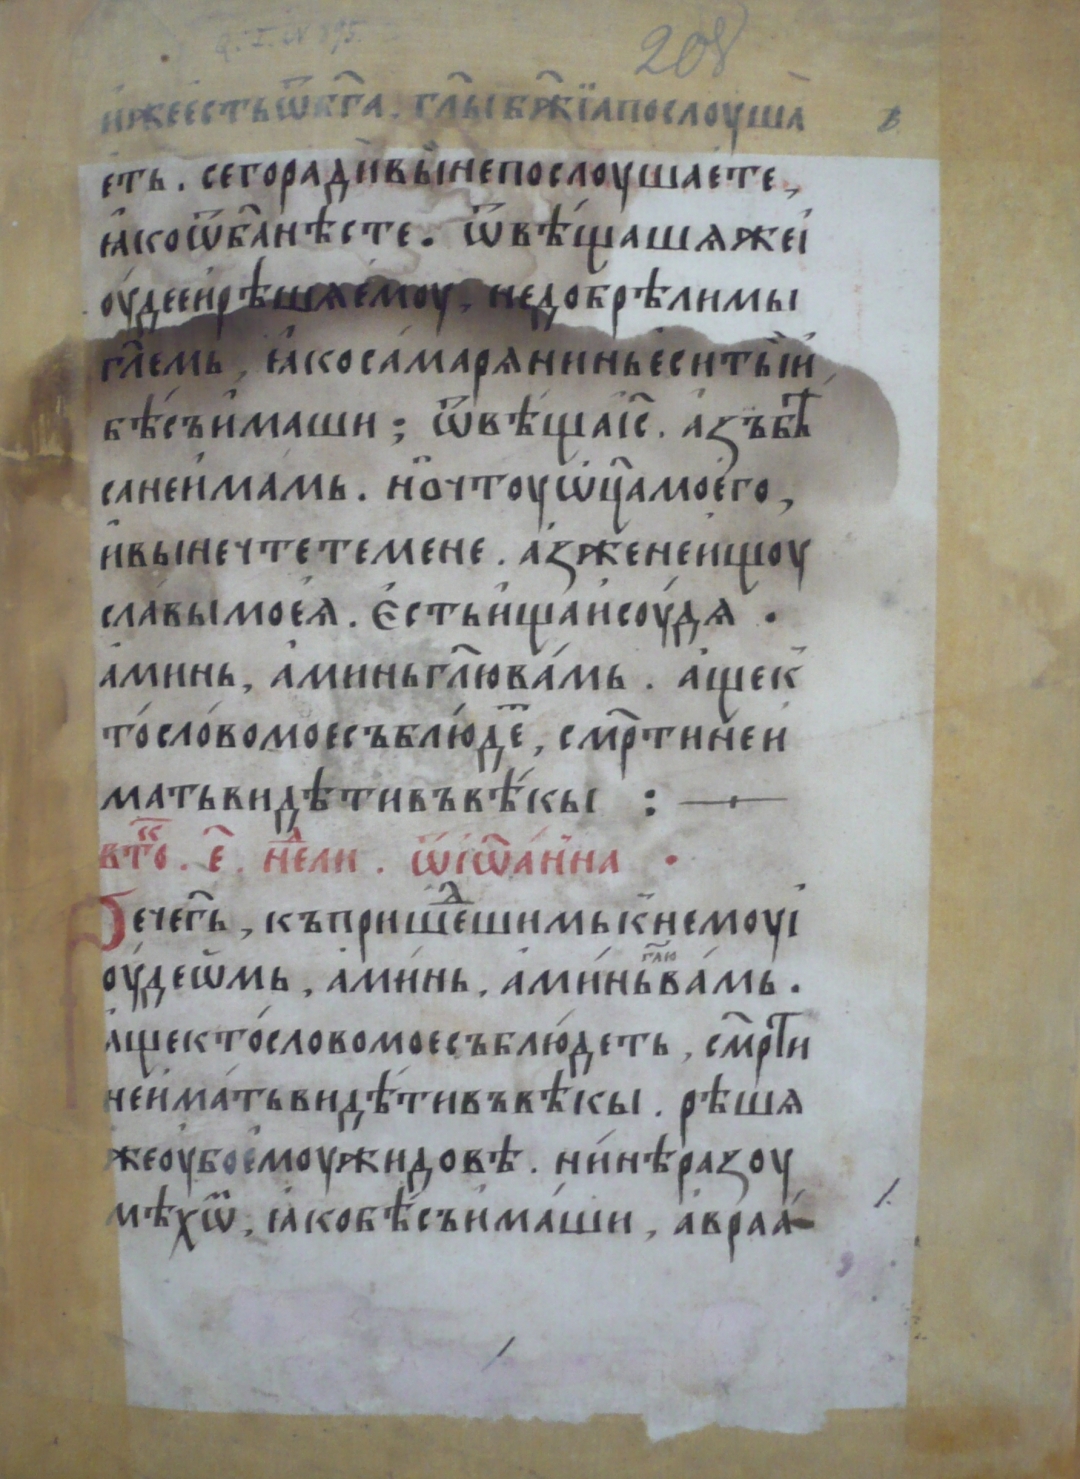 208
и҆жеє҆стьѿбг҃а. гл҃ыбж҃їѧпослоуша
є҆ть. сегорадиивыинепослоушаєте,
ꙗ҆коѿба҃нѣсте. ѿвѣщашѧжеі
оу҆дееи҆рѣшѧе҆моу, недобрѣлимы
гл҃емь, ꙗ҆косамарѧниньєситыи҆
бѣсъи҆маши; ѿвѣщаіс҃. а҆зъбѣ
санеи҆мамь. нѡ҆чтоуѡ҆ц҃амоє҆го,
и҆вынечтетемене. а҆зженеи҆щоу
славымоеѧ. є҆стьи҆щаи҆соу҆дѧ.
а҆минь, а҆миньгл҃ювамь. а҆щек
тословомоесъблюде҃, смр҃тинеи
матьвидѣтивъвѣкы :
вто҃. е҃. нед҃ели. ѿіѡ҆анна .
Речегь҃, къпришед҃шимькнемоуі
оу҆деѡмь, а҆минь, а҆миньгл҃ювамь.
а҆щектословомоесъблюдеть, смр҃ти
неи҆матьвидѣтивъвѣкы. рѣшѧ
жеоу҆боє҆моужидовѣ. нинѣразоу
мѣхѡ҃, ꙗ҆кобѣсъи҆маши, а҆враа